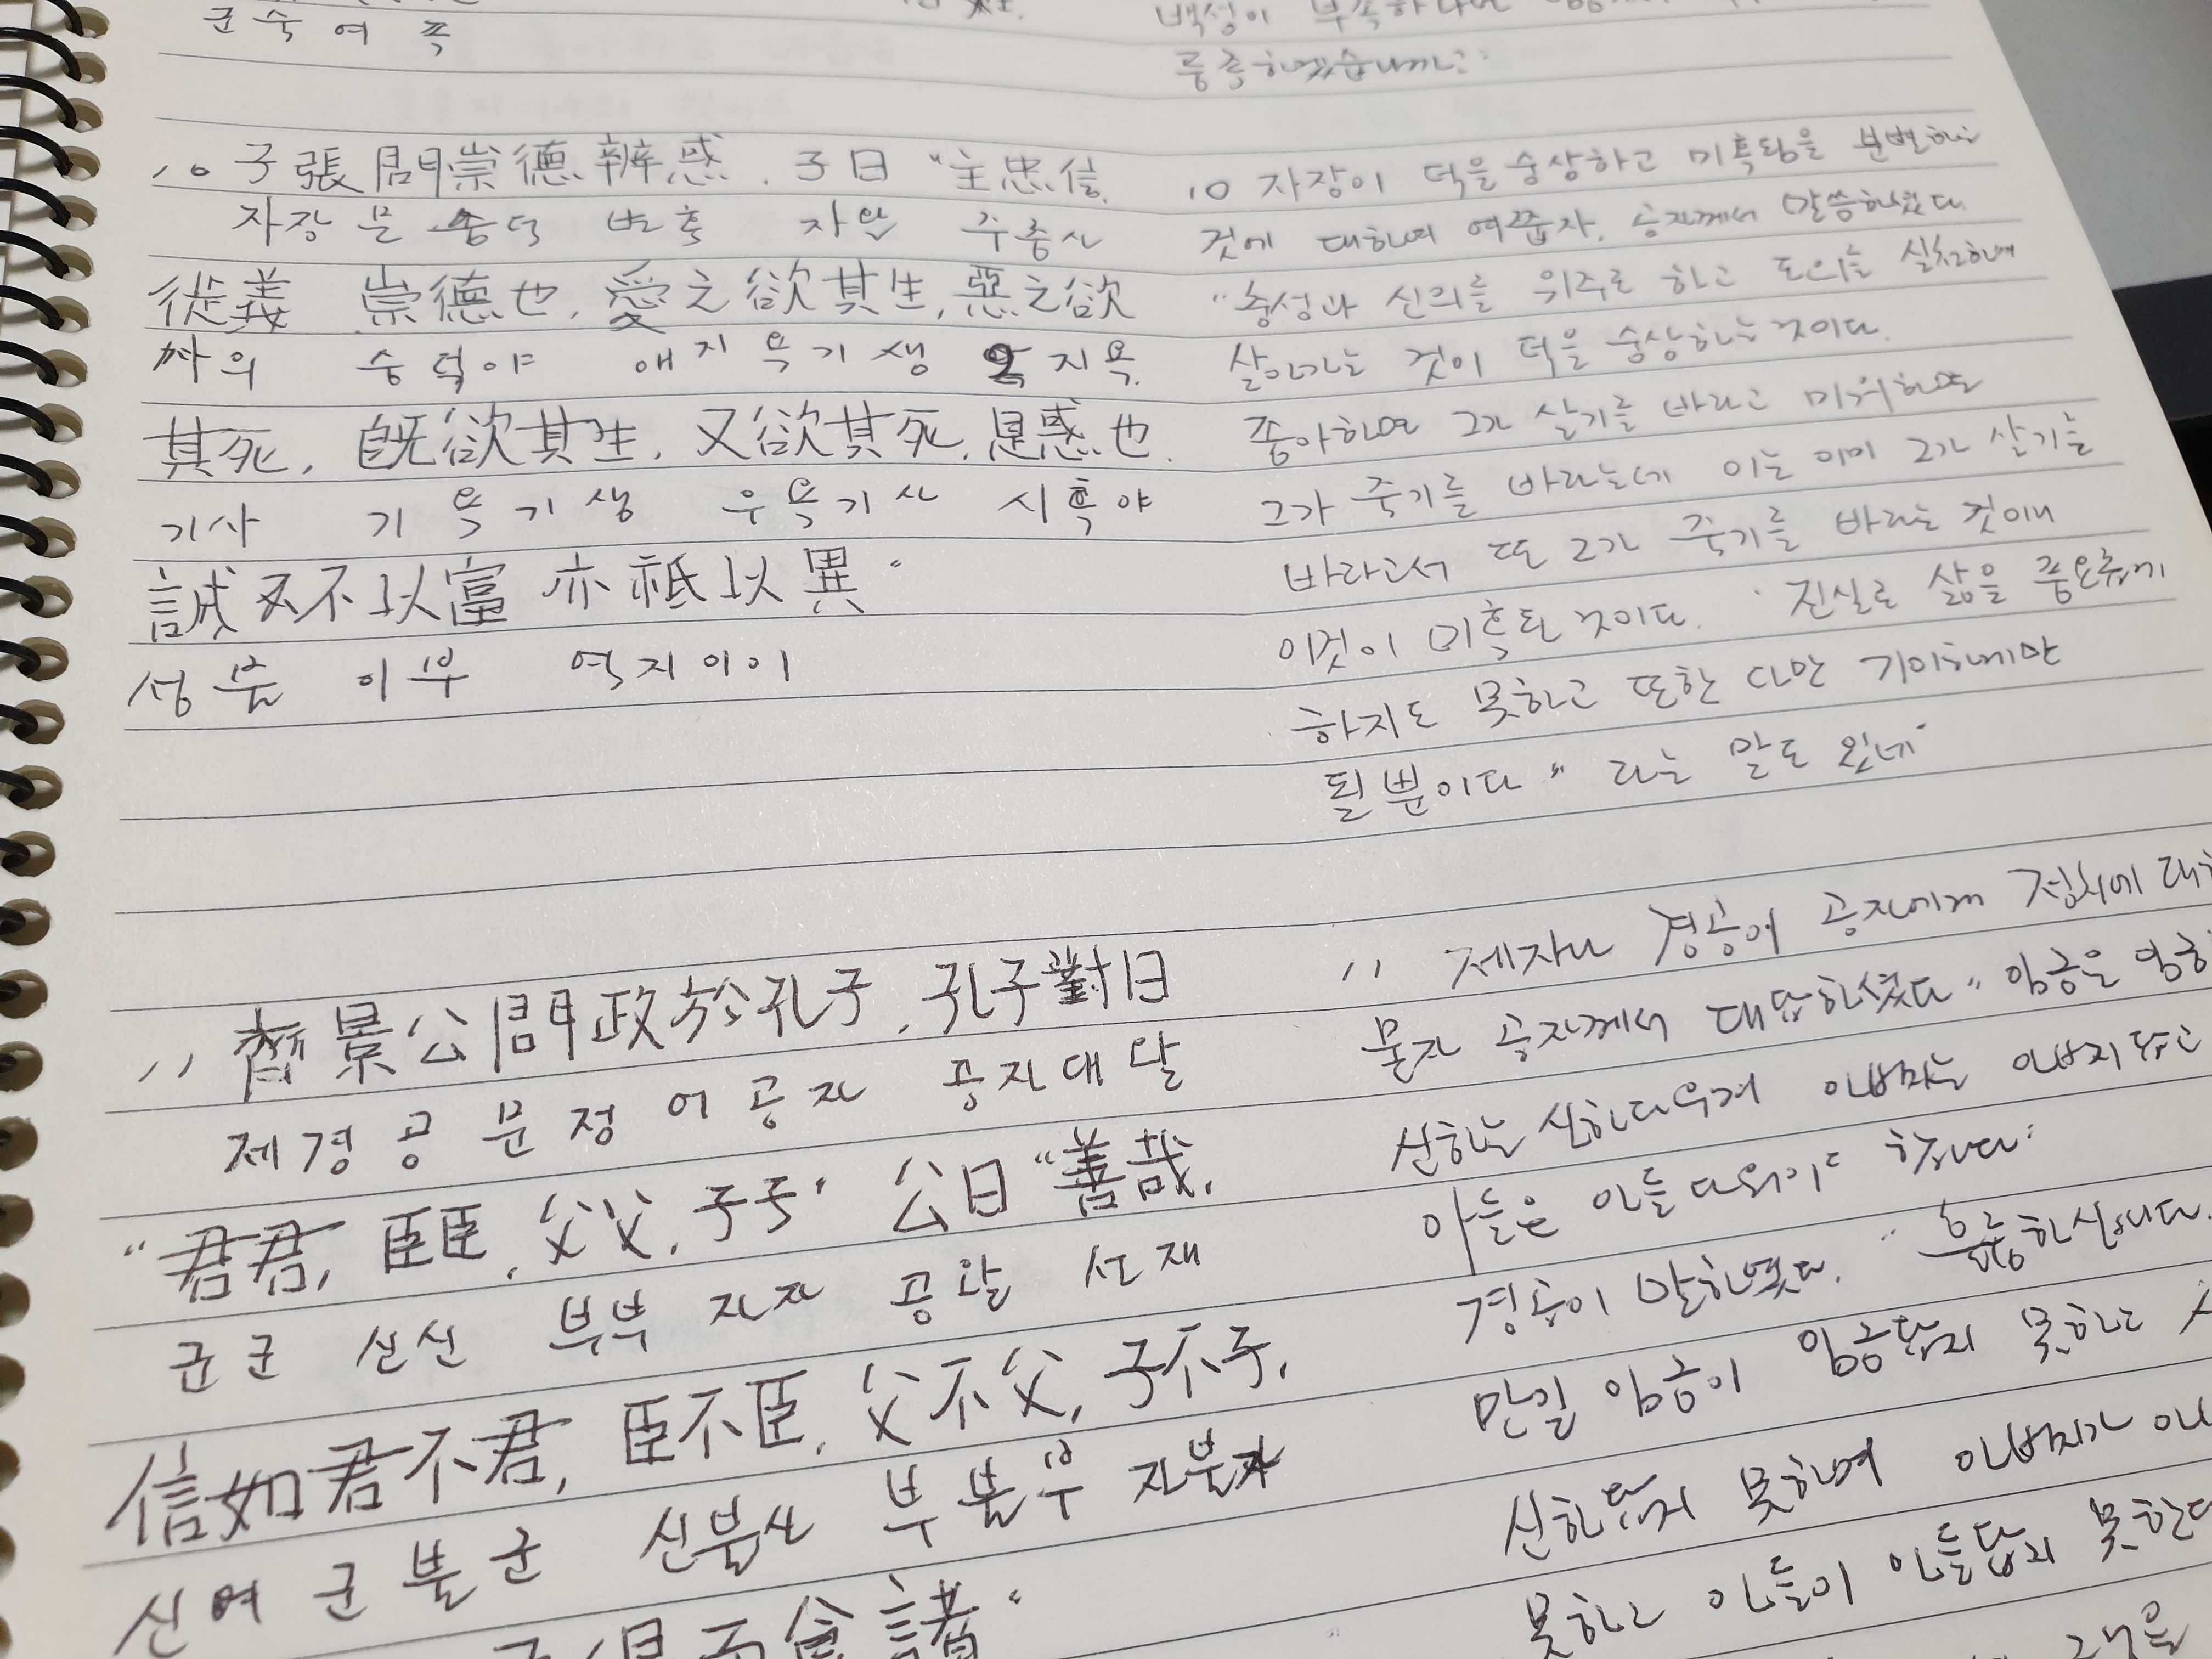 군숙여족
백성이
풍족하겠습니까?"
10 子張問崇德辨惑. 子曰 "主忠信,
자장문 숭덕 변혹 자왈 주충신
從義 崇德也, 愛之欲其生, 惡之欲
사의 숭덕야 애지욕기생 오지욕
其死, 旣欲其生, 又欲其死, 是惑也.
기사 기욕기생 우욕기사 시혹야
誠不以富 亦祗以異"
성불 이부 역지이이
10 자장이 덕을 숭상하고 미혹됨을 분별하는
것에 대하여 여쭙자, 공자께서 말씀하셨다.
"충성과 신의를 위주로 하고 도의를 실천하며
살아가는 것이 덕을 숭상하는 것이다.
좋아하면 그가 살기를 바라고 미워하면
그가 죽기를 바라는데 이는 이미 그가 살기를
바라고서 또 그가 죽기를 바라는 것이니
이것이 미혹된 것이다. '진실로 삶을 풍요롭게
하지도 못하고 또한 다만 기이하게만
될 뿐이다" 라는 말도 있네"
11 齊景公問政於孔子, 孔子對曰
제경공 문정어공자 공자대왈
"君君, 臣臣, 父父, 子子" 公曰 "善哉,
군군 신신 부부 자자 공왈 선재
信如君不君, 臣不臣, 父不父, 子不子,
신여군불군 신불신 부불부 자불자
食諸"
11 제자나 경공이 공자에게 정치에
묻자 공자께서 대답하셨다 "임금은
신하는 신하다우며 아버지는 아버지답고
아들은 아들다워야 합니다"
경공이 말하였다. "훌륭하십니다.
만일 임금이 임금답지 못하고
신하답지 못하며 아버지가
못하고 아들이 아들답지 못한다